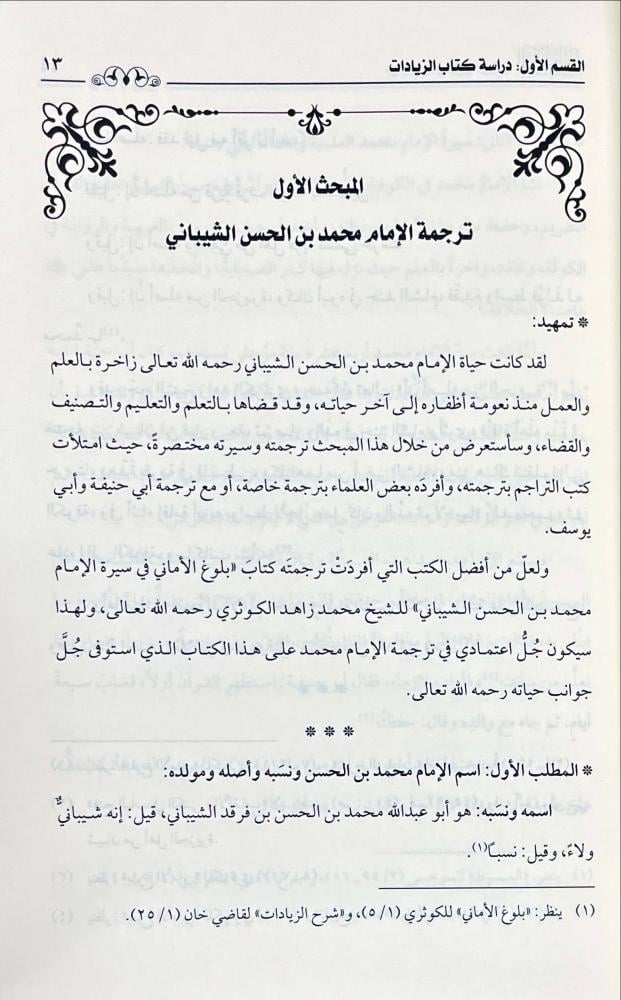 القسم الأول: دراسة كتاب الزيادات ١٣
المبحث الأول
ترجمة الإمام محمد بن الحسن الشيباني
* تمهيد:
لقد كانت حياة الإمام محمد بن الحسن الشيباني رحمه الله تعالى زاخرة بالعلم
والعمل منذ نعومة أظفاره إلى آخر حياته، وقد قضاها بالتعلم والتعليم والتصنيف
والقضاء، وسأستعرض من خلال هذا المبحث ترجمته وسيرته مختصرةً، حيث امتلأت
كتب التراجم بترجمته، وأفردَه بعض العلماء بترجمة خاصة، أو مع ترجمة أبي حنيفة وأبي
يوسف.
ولعلّ من أفضل الكتب التي أفردَتْ ترجمتَه كتابَ «بلوغ الأماني في سيرة الإمام
محمد بن الحسن الشيباني» للشيخ محمد زاهد الكوثري رحمه الله تعالى، ولهذا
سيكون جُلُّ اعتمادي في ترجمة الإمام محمد على هذا الكتاب الذي استوفى جُلَّ
جوانب حياته رحمه الله تعالى.
* * *
* المطلب الأول: اسم الإمام محمد بن الحسن ونسَبه وأصله ومولده:
اسمه ونسَبه: هو أبو عبدالله محمد بن الحسن بن فرقد الشيباني، قيل: إنه شيبانيٌّ
ولاءً، وقيل: نسبًا(١).
(١) ينظر: «بلوغ الأماني» للكوثري (١/ ٥)، و«شرح الزيادات» لقاضي خان (١/ ٢٥).